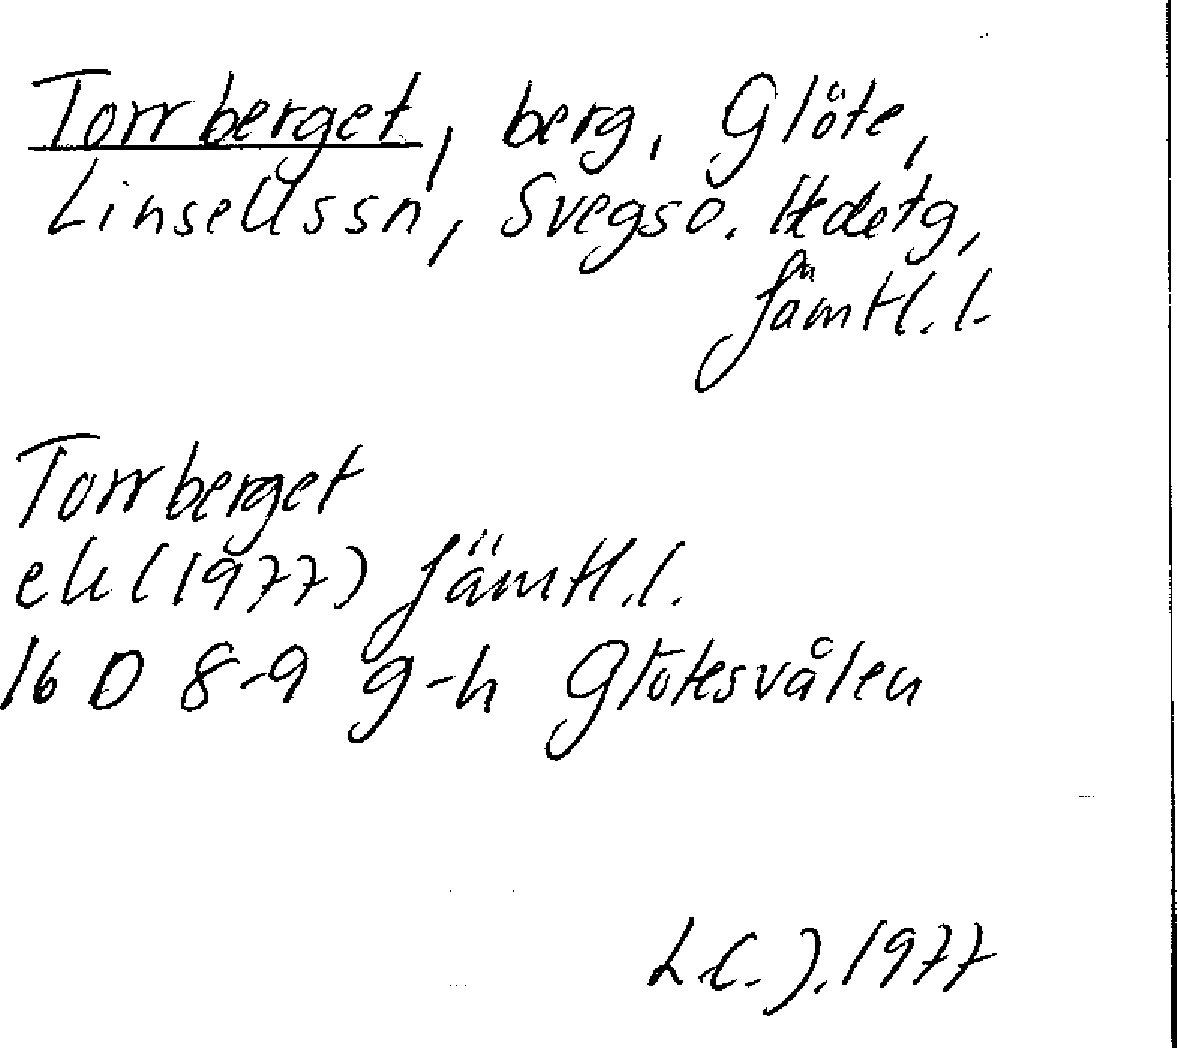 Torrberget, berg, Glöte,
Linsellssn, Svegs
Jämtl. l.
Torrberget
ek (1977) Jämtl. l.
16 D 8-9 g-h Glötesvålen
L.C.J. 1977